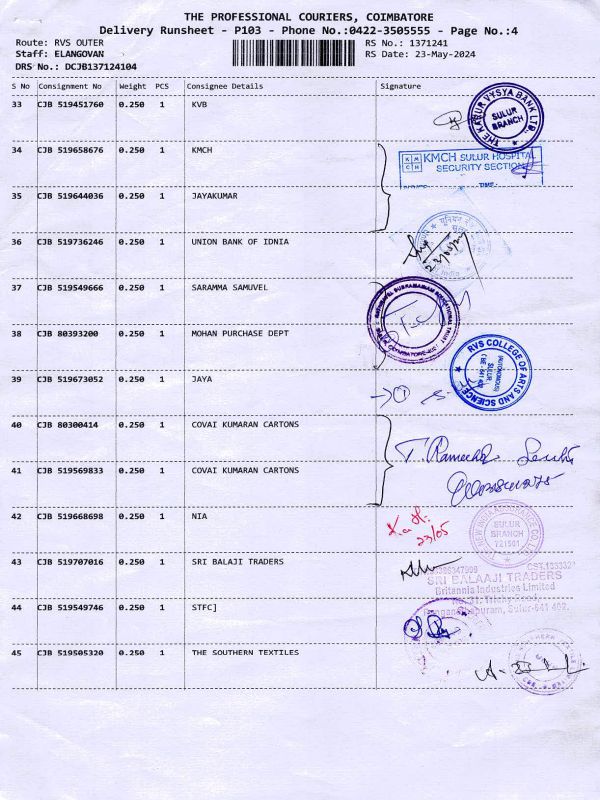 THE PROFESSIONAL COURIERS, COIMBATORE
Delivery Runsheet - P103 - Phone No.:0422-3505555 - Page No.:4
Route: RVS OUTER
RS No.: 1371241
Staff: ELANGOVAN
RS Date: 23-May-2024
DRS No.: DCJB137124104
S No Consignment No Weight PCS Consignee Details Signature
33 CJB 519451760 0.250 1 KVB
THE KARUR VYSYA BANK LTD.
SULUR
BRANCH
34 CJB 519658676 0.250 1 KMCH
KMCH SULUR HOSPITAL
SECURITY SECTION
35 CJB 519644036 0.250 1 JAYAKUMAR
36 CJB 519736246 0.250 1 UNION BANK OF IDNIA
37 CJB 519549666 0.250 1 SARAMMA SAMUVEL
38 CJB 80393200 0.250 1 MOHAN PURCHASE DEPT
39 CJB 519673052 0.250 1 JAYA
RVS COLLEGE OF ARTS AND SCIENCE
(AUTONOMOUS)
SULUR,
40 CJB 80300414 0.250 1 COVAI KUMARAN CARTONS
41 CJB 519569833 0.250 1 COVAI KUMARAN CARTONS
42 CJB 519668698 0.250 1 NIA
23/05
SULUR
BRANCH
721501
43 CJB 519707016 0.250 1 SRI BALAJI TRADERS
SRI BALAAJI TRADERS
Britannia Industries Limited
Sulur-641 402.
44 CJB 519549746 0.250 1 STFC]
45 CJB 519505320 0.250 1 THE SOUTHERN TEXTILES